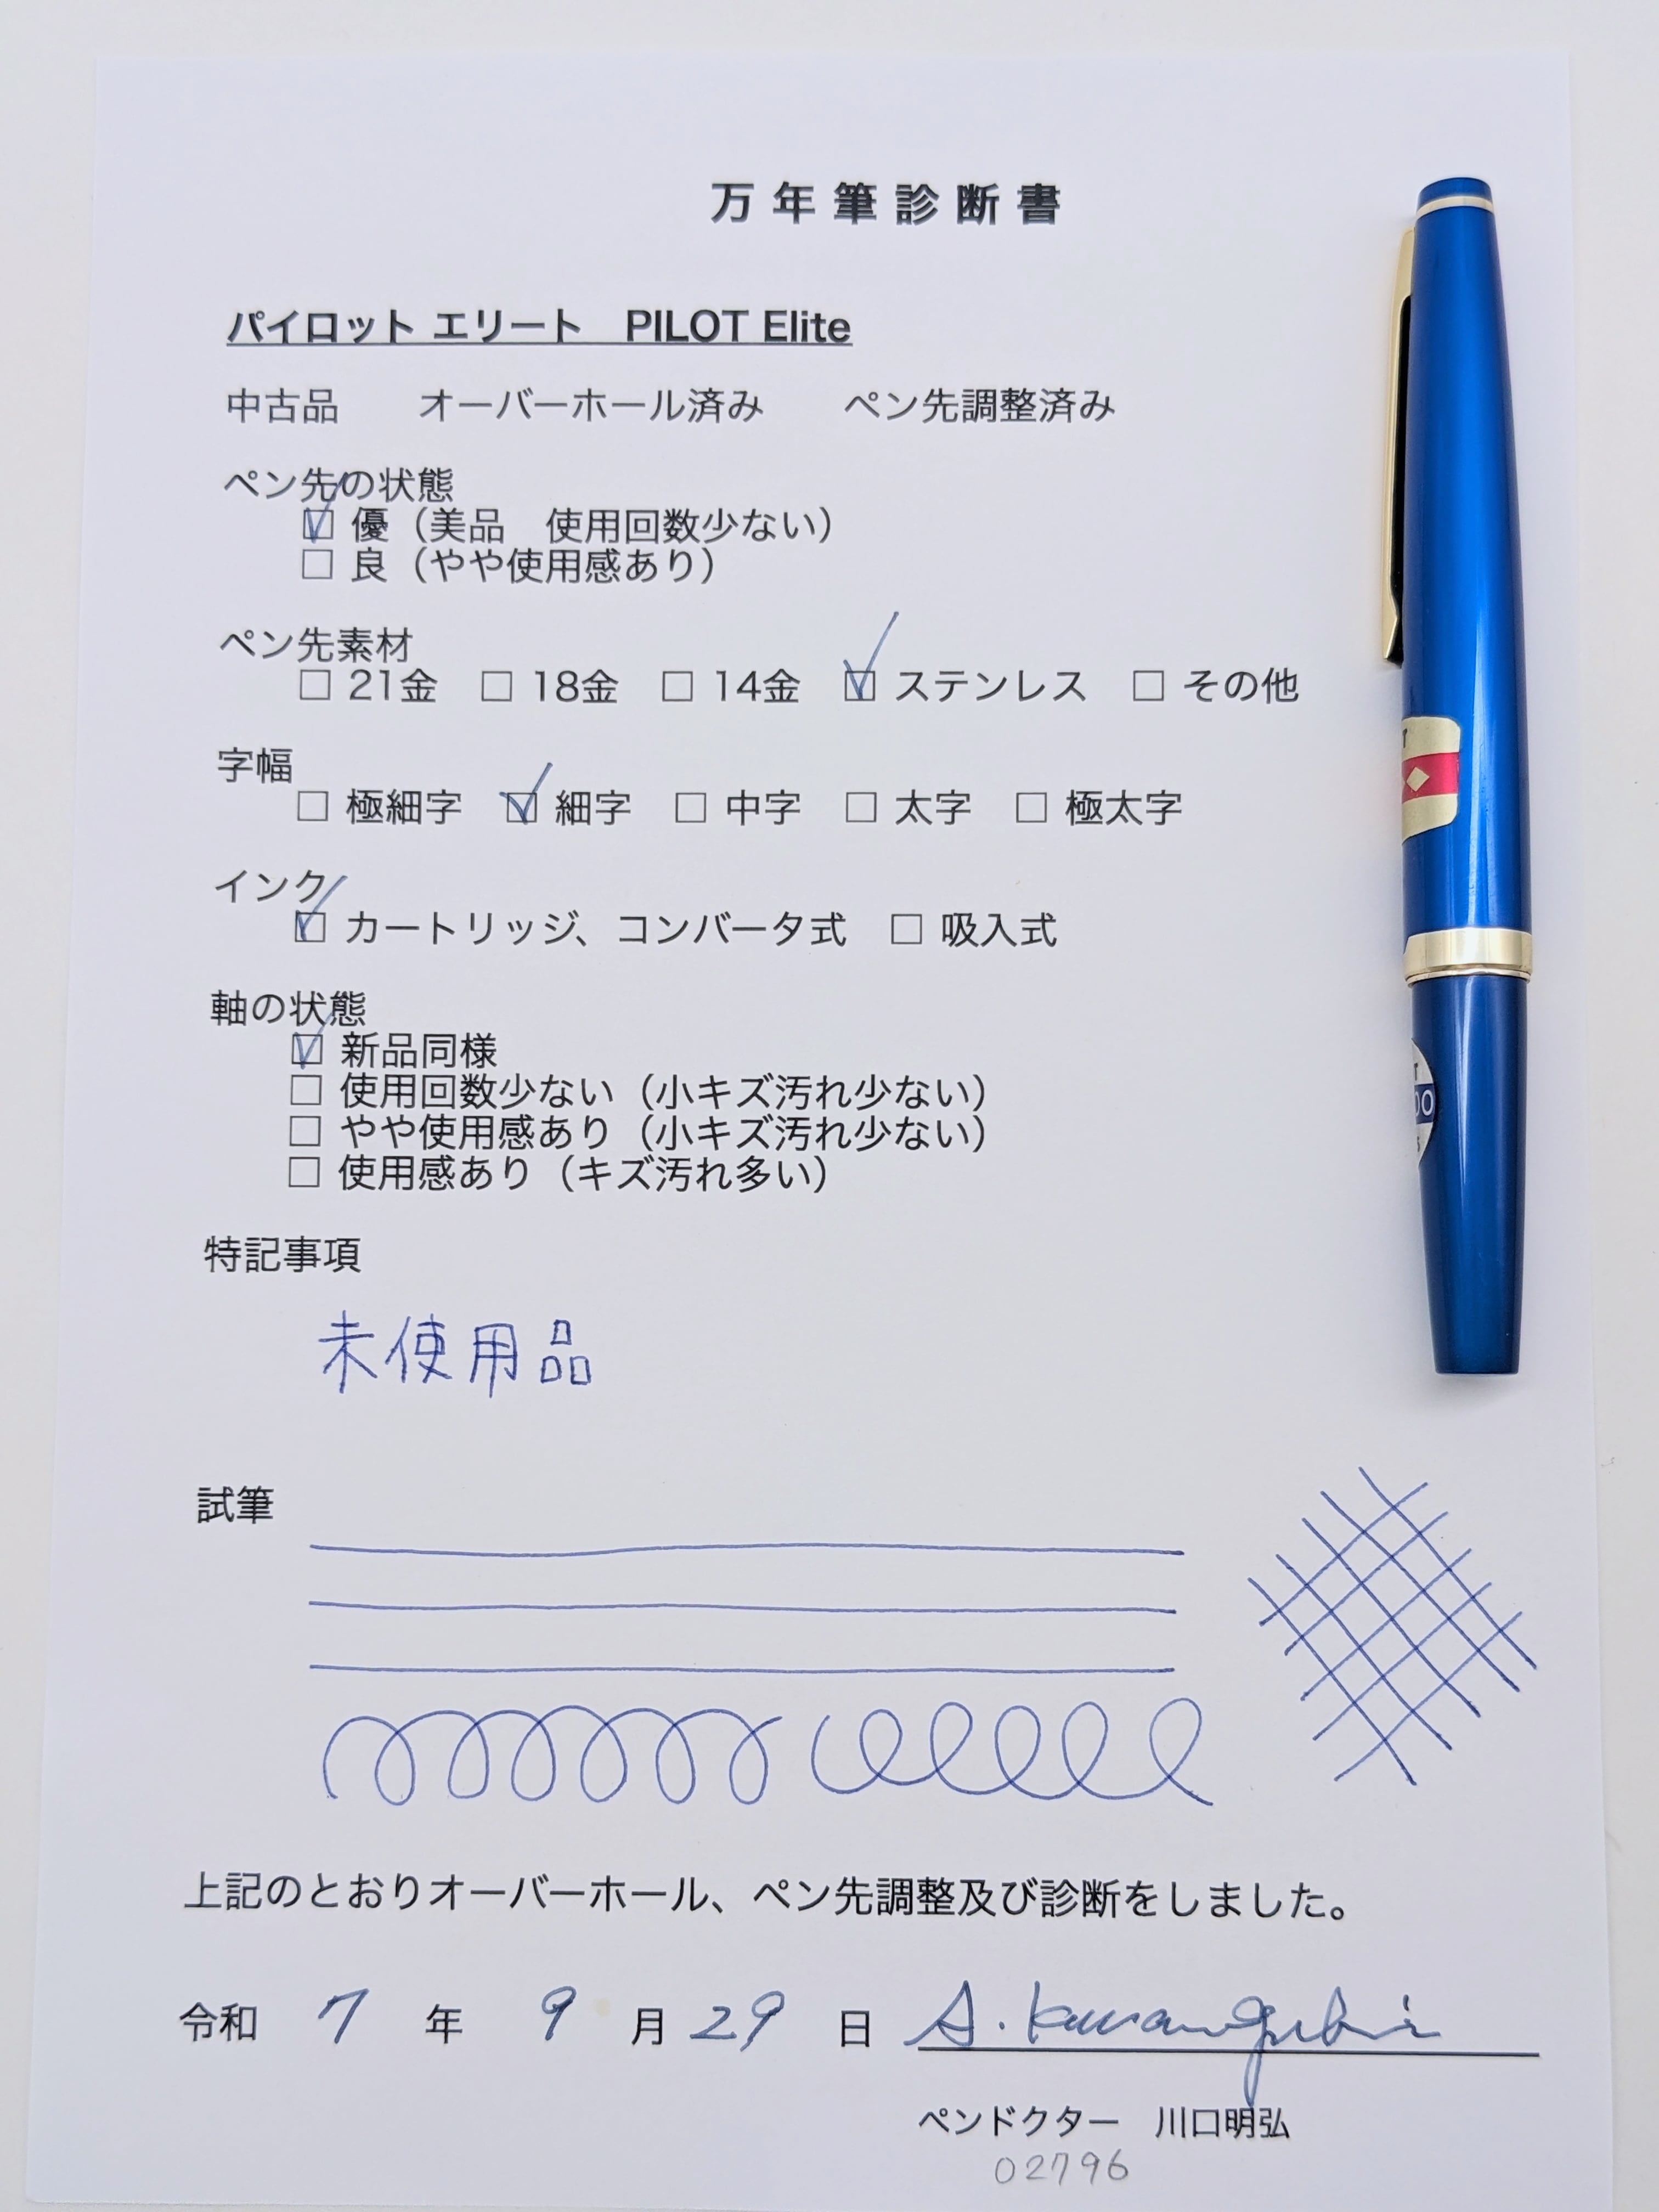 万年筆診断書
パイロット エリート　PILOT Elite
中古品　　オーバーホール済み　　ペン先調整済み
ペン先の状態
☑ 優（美品　使用回数少ない）
☐ 良（やや使用感あり）
ペン先素材
☐ 21金　☐ 18金　☐ 14金　☑ ステンレス　☐ その他
字幅
☐ 極細字　☑ 細字　☐ 中字　☐ 太字　☐ 極太字
インク
☑ カートリッジ、コンバータ式　☐ 吸入式
軸の状態
☑ 新品同様
☐ 使用回数少ない（小キズ汚れ少ない）
☐ やや使用感あり（小キズ汚れ少ない）
☐ 使用感あり（キズ汚れ多い）
特記事項
未使用品
試筆
上記のとおりオーバーホール、ペン先調整及び診断をしました。
令和 7 年 9 月 29 日 A. Kawaguchi
ペンドクター　川口明弘
02796